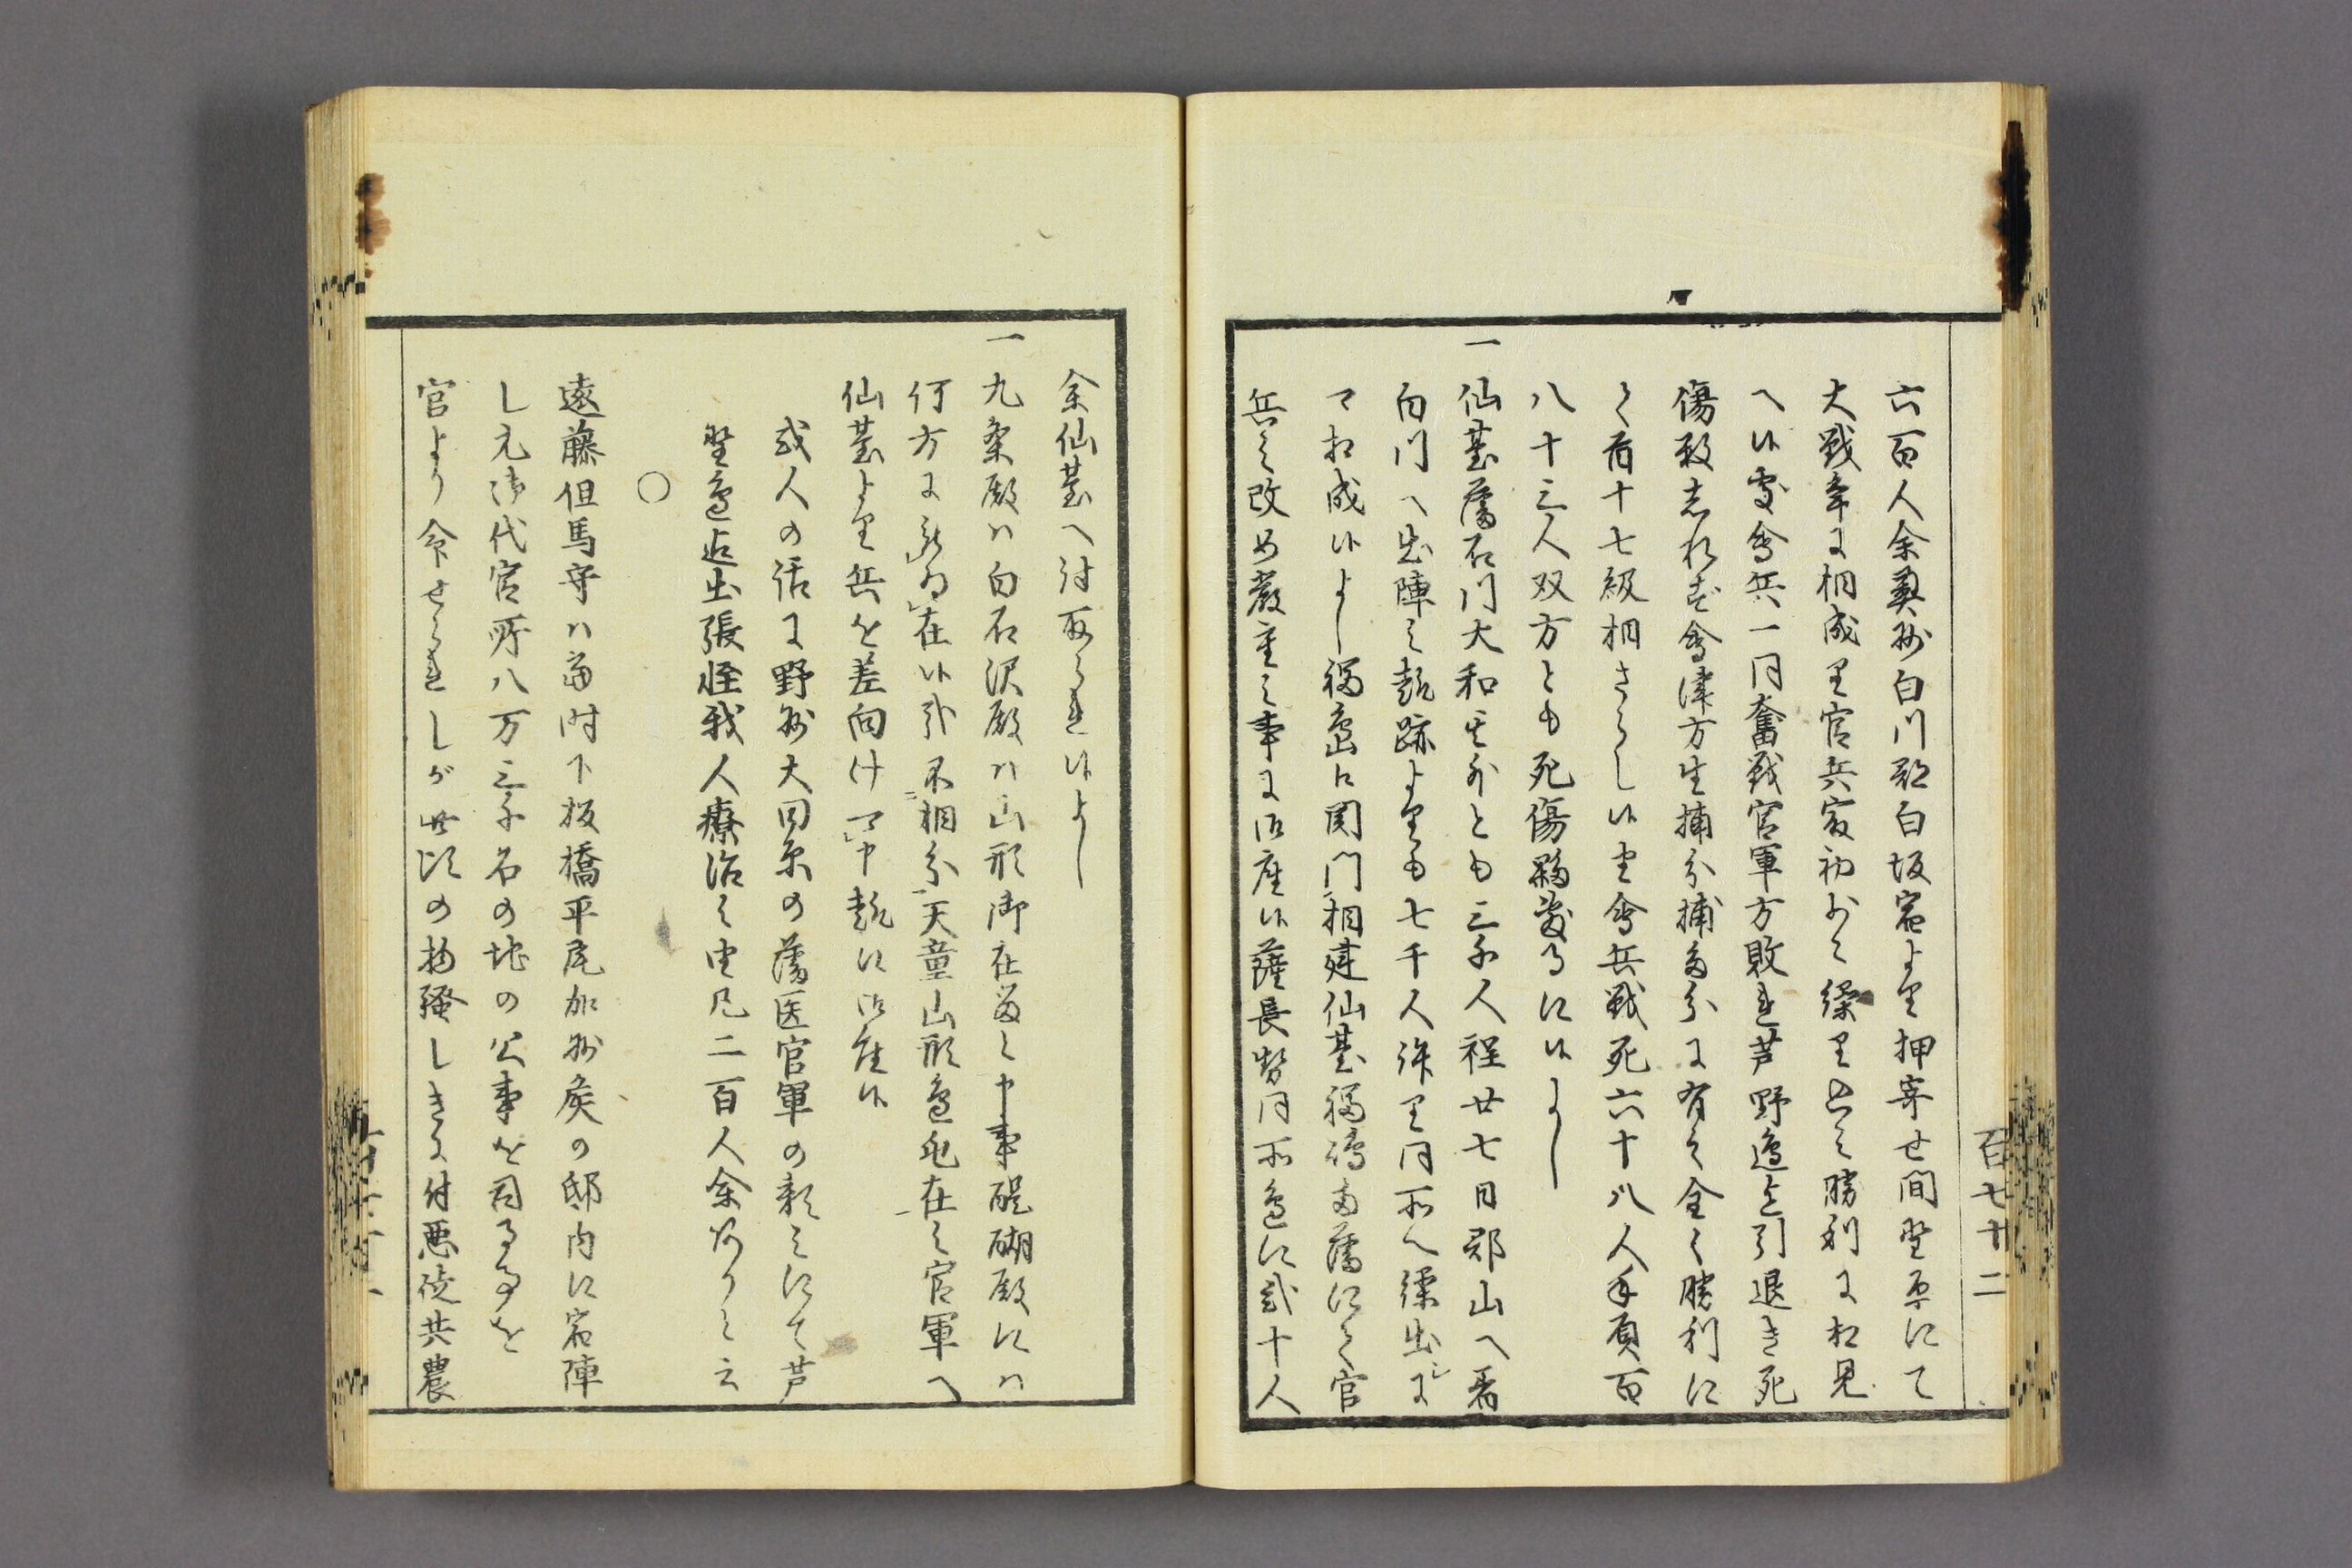 百七十二
六百人余奥州白川郡白坂宿より押寄せ間野原にて
大戦争に相成り官兵最初少々繰り出之勝利に相見
へ候処会兵一同奮戦官軍方敗れ芦野辺迄引退き死
傷数志れず会津方生捕分捕多分に有之全く勝利に
て首十七級相さらし候由会兵戦死六十八人手負百
八十三人双方とも死傷夥敷事に候よし
一仙台藩石門大和其外とも三千人程廿七日郡山へ着
白川へ出陣之趣跡よりも七千人許り同所へ繰出しに
て相成候よし福島口関門相建仙台福嶋両藩にて官
兵之改め厳重之事に御座候薩長勢同所辺に弐十人
余仙台へ討取られ候よし
一九条殿は白石沢殿は山形御在留と申事醍醐殿には
何方に被為在候哉不相分天童山形辺屯在之官軍へ
仙台より兵を差向け可申趣に御座候
或人の話に野州大田原の藩医官軍の頼みにて芦
野辺迄出張怪我人療治之由凡二百人余ありと云
〇
遠藤但馬守は当時下板橋平尾加州侯の邸内に宿陣
し元御代官所八万三千石の地の公事を司る事を
官より命せられしが此頃の物騒しきに付悪徒共農